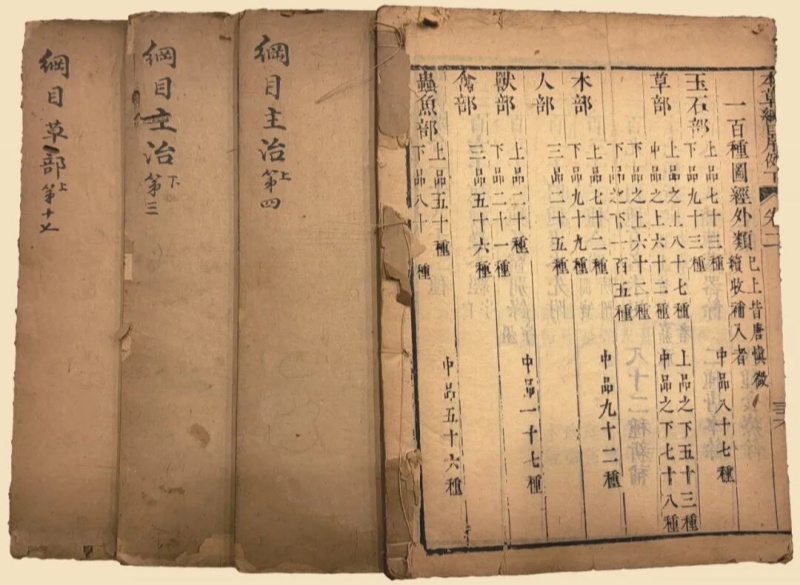 本草綱目序例下 卷二
一百種圖經外類
已上皆唐慎微
續收補入者
玉石部
上品七十三種 中品八十七種
下品九十三種
草部
上品之上八十七種 上品之下五十三種
中品之上六十二種 中品之下七十八種
下品之上六十二種
下品之下一百五種
木部
上品七十二種 中品九十二種
下品九十九種
人部
三品二十五種
獸部
上品二十種 中品一十七種
下品二十一種
禽部
三品五十六種
蟲魚部
上品五十種 中品五十六種
下品八十一種
綱目主治上
第四
綱目主治下
第三
綱目草部上
第十